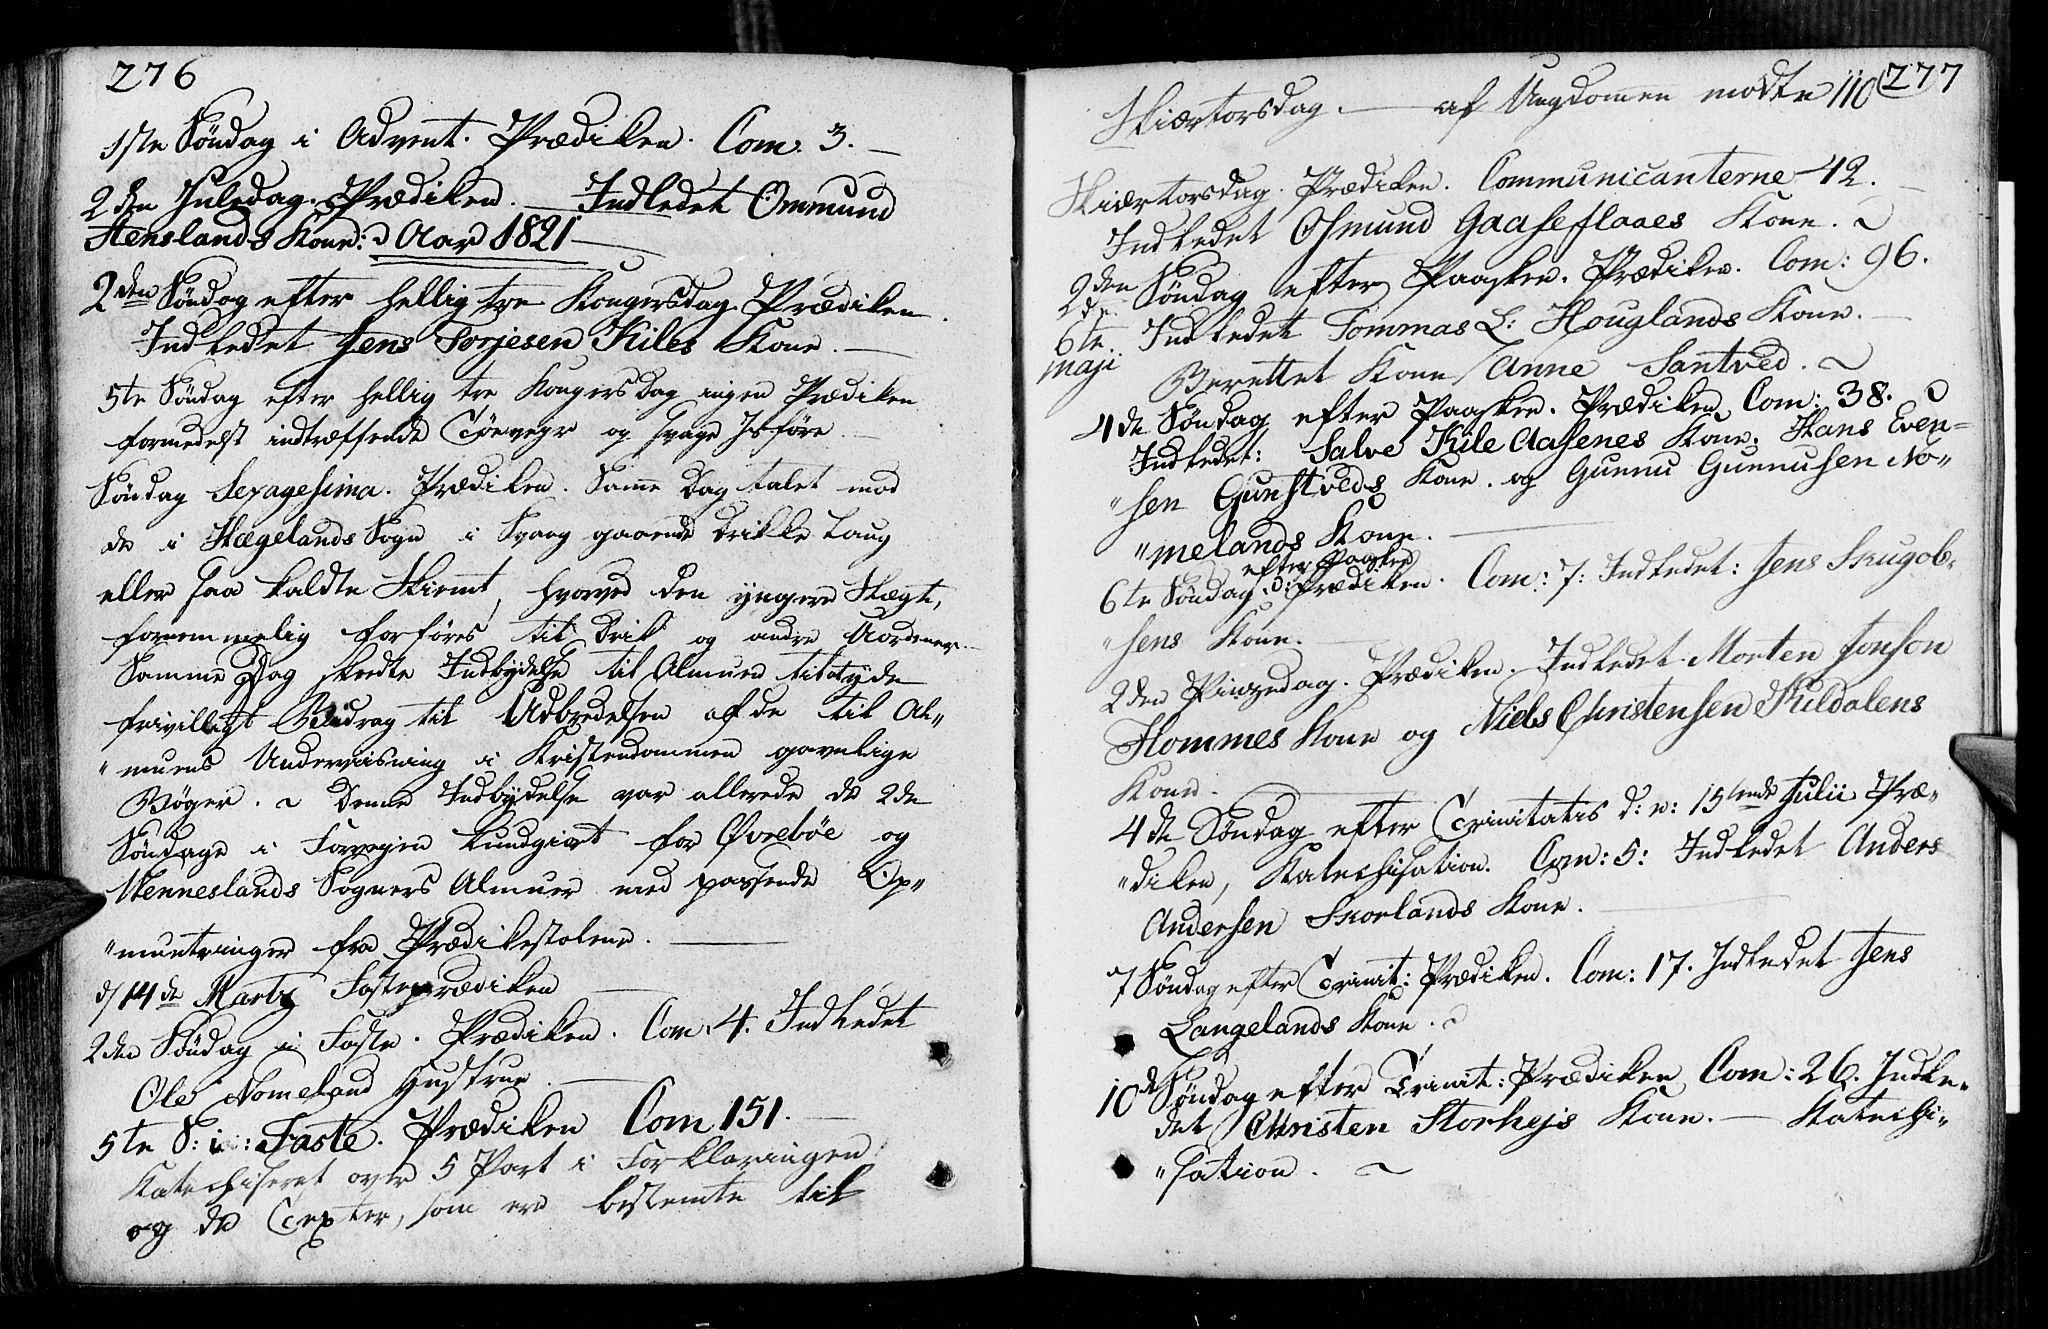 276
1ste Søndag i Advent. Prædiken. Com. 3. —
2den Juledag. Prædiken. — Indledet Ommund
Stenslands Kone. Aar 1821 —
2den Søndag efter hellig tre Kongersdag. Prædiken.
Indledet Jens Torjesen Kiles Kone. —
5te Søndag efter hellig tre Kongers Dag ingen Prædiken
formedelst indtræffende Tøeveyr og svage Isföre —
Søndag Sexagesima. Prædiken. Samme Dag talet mod
de i Hægelands Sogn i Svang gaaende Drikke Laug
eller saa kaldte Skiemt, hvorved den yngere Slægt,
fornemmelig forføres til Drik og andre Uordener.
Samme Dag skedte Indbydelse til Almuen til at yde
frivilligt Bidrag til Udbredelsen af de til Al„
„muens Underviisning i Kristendommen gavnlige
Bøger. ~ Denne Indbydelse var allerede de 2de
Søndage i Forveyen kundgiort for Øvrebøe og
Henneslands Sogners Almuer med passende Op„
„muntringer fra Prædikestolene. —
d/ 14de Marty Fasteprædiken —
2den Søndag i Faste. Prædiken. Com. 4. Indledet
Ole Nomeland Hustrue. —
5te S: i: Faste. Prædiken Com 151. —
Katechiseret over 5 Part i Forklaringen
og de Texter, som ere bestemte til
277
Skiærtorsdag. — af Ungdomen mødte 110
Skiærtorsdag. Prædiken. Communicanterne 42. —
Indledet Osmund Gaaseflaaes Kone. ~
2den Søndag efter Paasken. Prædiken. Com: 96.
Indledet Tommas L: Houglands Kone. —
6te maji
Berettet Kone Anne Santved. ~
4de Søndag efter Paasken. Prædiken Com: 38.
Indledet: Salve Kile Aasenes Kone. Hans Even=
„sen Gunstveds Kone. og Gunnu Gunnusen No„
„melands Kone. —
efter Paasken
6te Søndag Prædiken. Com: 7: Indledet: Jens Jacob„
„sens Kone.
2den Pinzedag. Prædiken. Indledet Morten Jonson
Hommes Kone og Niels Christensen Kuldalens
Kone. —
4de Søndag efter Trinitatis d: e: 15tende Julii Præ„
„diken, Katechisation. Com: 5: Indledet Anders
Andersen Skorlands Kone. —
7 Søndag efter Trinit: Prædiken. Com: 17. Indledet Jens
Langelands Kone. ~
10de Søndag efter Trinit: Prædiken Com: 26. Indle„
det Christen Storhejs Kone. — Katechi„
„sation. ~